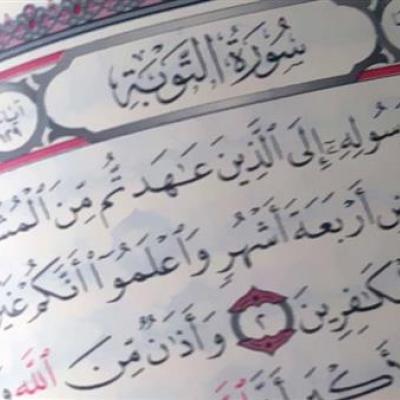 سُورَةُ التَّوْبَةِ
آيَاتُهَا ١٢٩
إِلَى ٱلَّذِينَ عَٰهَدتُّم مِّنَ
أَرْبَعَةَ أَشْهُرٍ وَٱعْلَمُوٓا۟ أَنَّكُمْ
ٱلْكَٰفِرِينَ ٢ وَأَذَٰنٌ مِّنَ ٱللَّهِ